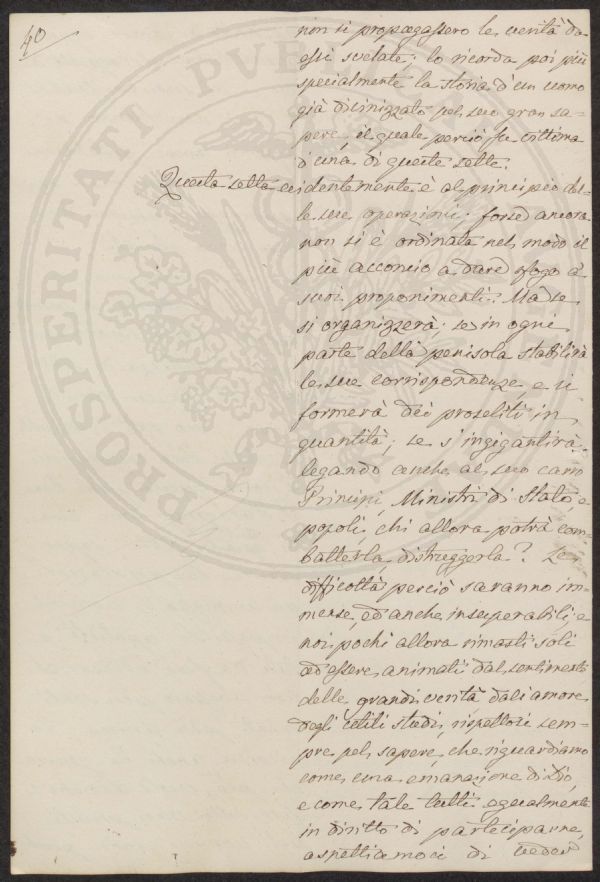 40
non si propagassero le verità da
essi svelate; lo ricorda poi più
specialmente la storia d'un uomo
già divinizzato pel suo gran sa-
pere, il quale perciò fu vittima
d'una di queste sette.
Questa setta evidentemente è al principio del-
le sue operazioni; forse ancora
non si è ordinata nel modo il
più acconcio a dare sfogo a'
suoi proponimenti. Ma se
si organizzerà; se in ogni
parte della penisola stabilirà
le sue corrispondenze, e si
formerà dei proseliti in
quantità; se s'ingigantirà,
legando anche al suo carro
Principi, Ministri di Stato, e
popoli, chi allora potrà com-
batterla, distruggerla? Le
difficoltà perciò saranno im-
mense, ed anche insuperabili; e
noi pochi allora rimasti soli
ad essere animati dal sentimento
delle grandi verità dall'amore
degli utili studi, rispettosi sem-
pre pel sapere, che riguardiamo
come una emanazione di Dio,
e come tale tutti egualmente
in diritto di participarne,
aspettiamoci di veder
PVBLI
PROSPERITATI